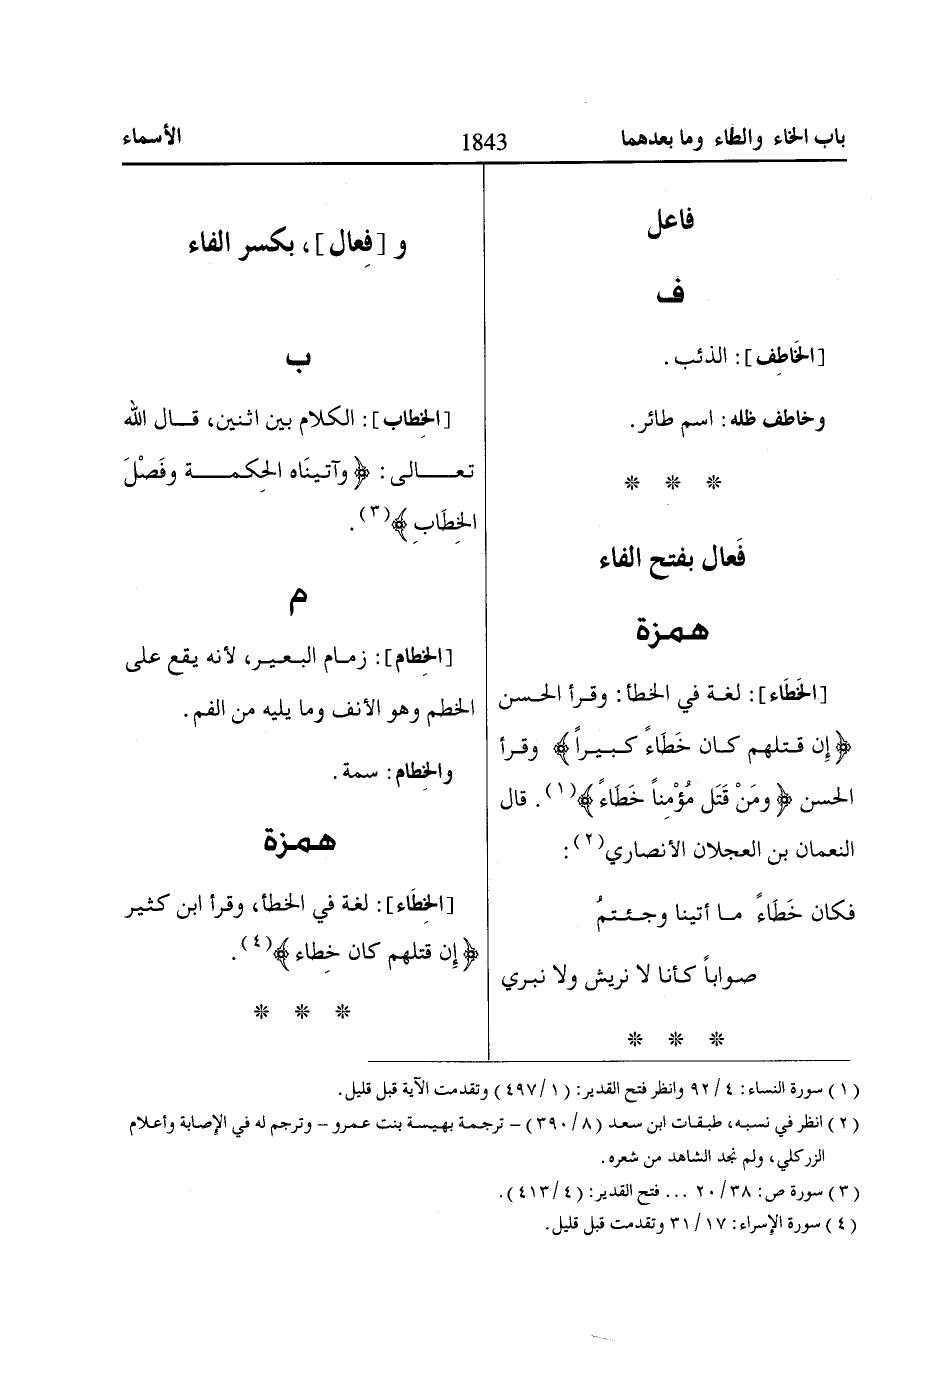 باب الخاء والطاء وما بعدهما
1843
الأسماء
فاعل
ف
[الخَاطِف]: الذئب.
وخاطف ظله: اسم طائر.
* * *
فَعال بفتح الفاء
همزة
[الخَطَاء]: لغة في الخطأ: وقرأ الحسن
﴿إن قتلهم كان خَطَاءً كبيراً﴾ وقرأ
الحسن ﴿ومَنْ قَتَل مُؤْمِناً خَطَاءً﴾(١). قال
النعمان بن العجلان الأنصاري(٢):
فكان خَطَاءً ما أتينا وجئتمُ
صواباً كأنا لا نريش ولا نبري
* * *
و [فِعال]، بكسر الفاء
ب
[الخِطاب]: الكلام بين اثنين، قال الله
تعالى: ﴿وآتينَاه الحِكمة وفَصْلَ
الخِطَابِ﴾(٣).
م
[الخِطام]: زمام البعير، لأنه يقع على
الخطم وهو الأنف وما يليه من الفم.
والخِطام: سمة.
همزة
[الخِطَاء]: لغة في الخطأ، وقرأ ابن كثير
﴿إن قتلهم كان خِطاء﴾(٤).
* * *
(١) سورة النساء: ٤/ ٩٢ وانظر فتح القدير: (١/ ٤٩٧) وتقدمت الآية قبل قليل.
(٢) انظر في نسبه، طبقات ابن سعد (٨/ ٣٩٠) – ترجمة بهيسة بنت عمرو – وترجم له في الإصابة وأعلام
الزركلي، ولم نجد الشاهد من شعره.
(٣) سورة ص: ٣٨/ ٢٠ ... فتح القدير: (٤/ ٤١٣).
(٤) سورة الإسراء: ١٧/ ٣١ وتقدمت قبل قليل.